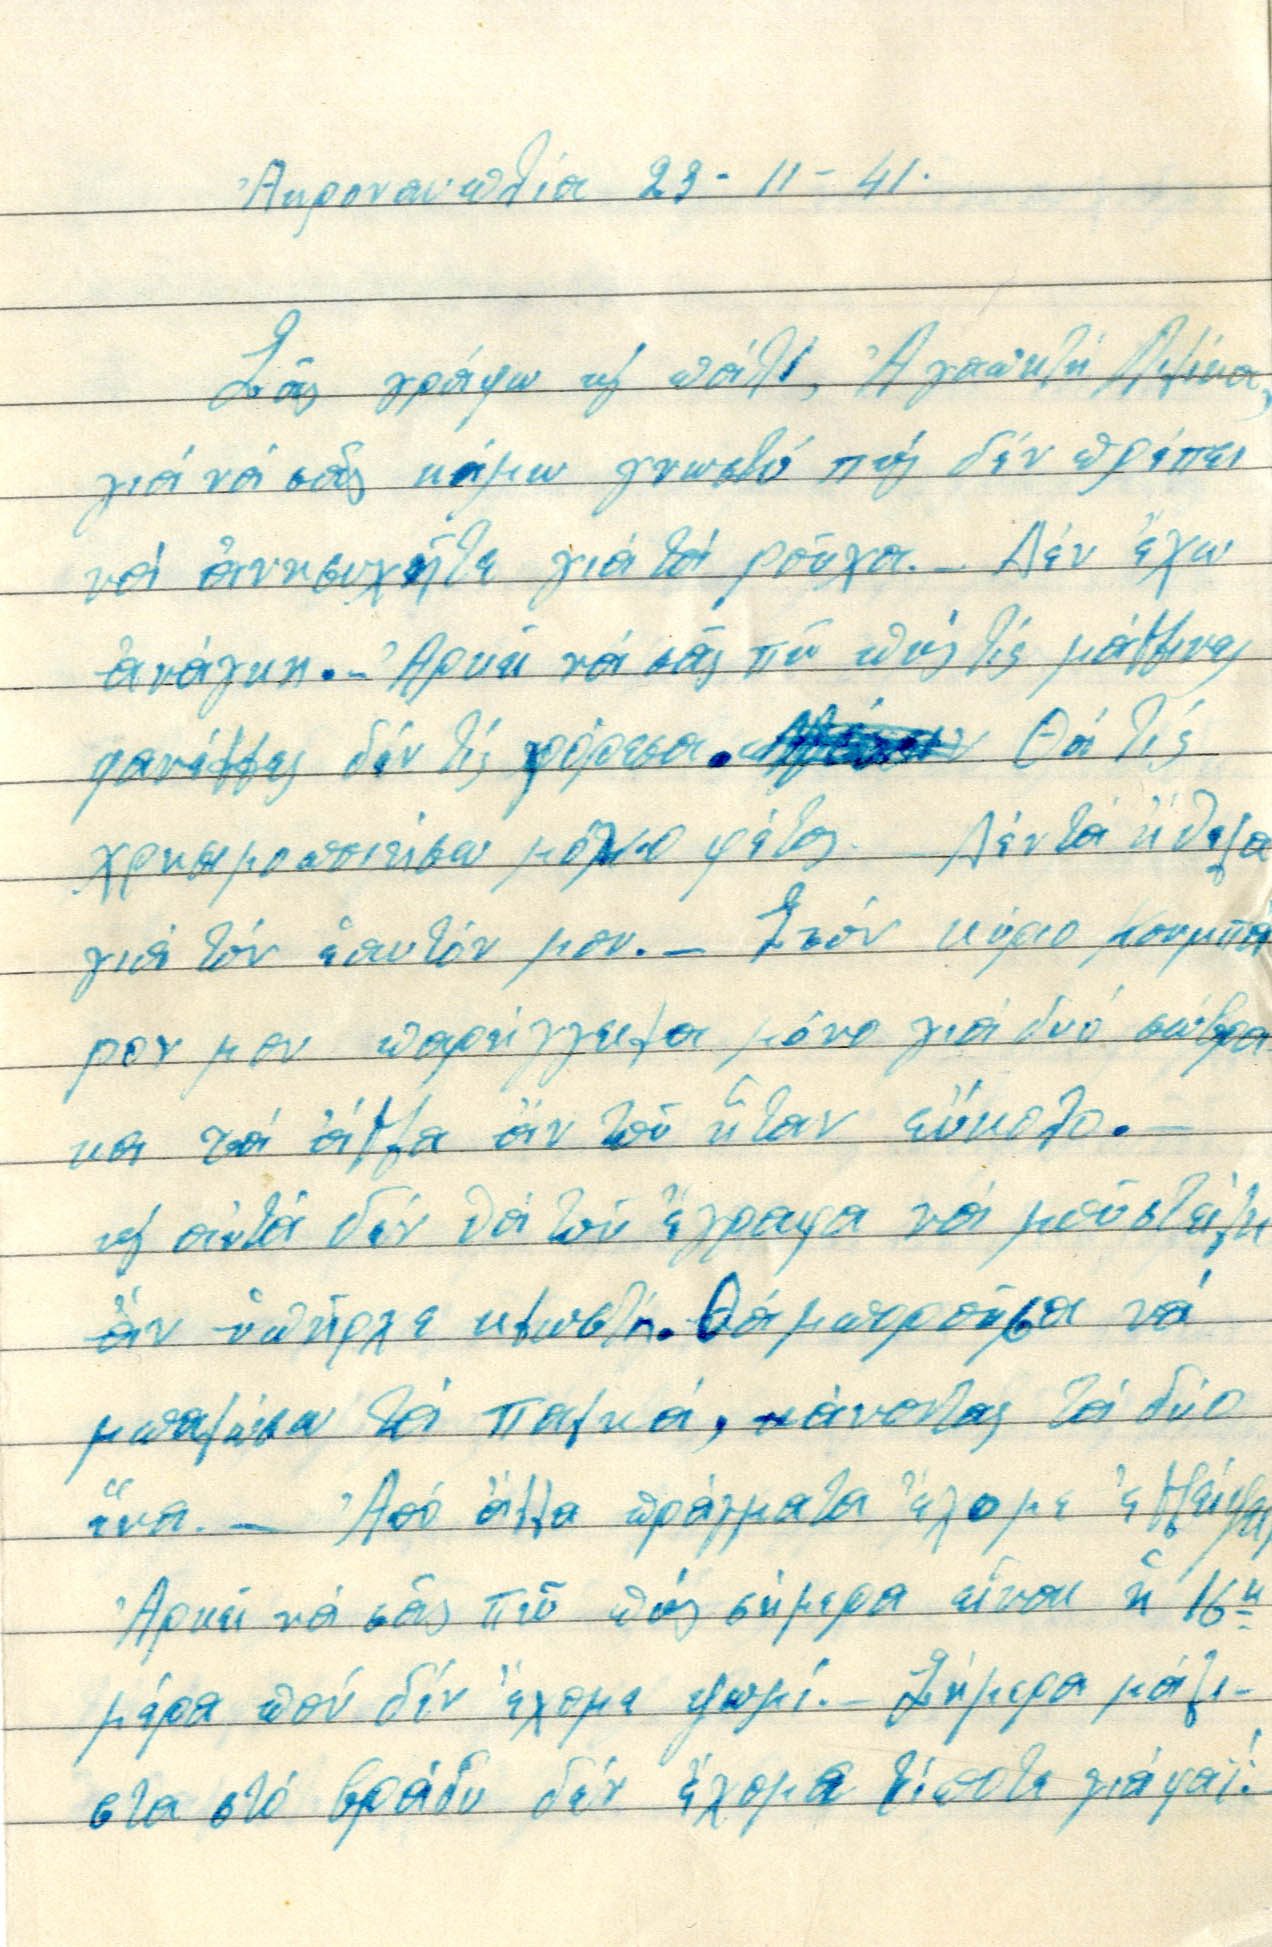 Ἀκροναυπλία 23-11-41.
Σᾶς γράφω κ̓ πάλι, Ἀγαπητή
γιά νά σᾶς κάμω γνωστό πώς δέν πρέπει
νά ἀνησυχῆτε γιά τά ροῦχα.— Δέν ἔχω
ἀνάγκη.— Ἀρκεῖ νά σᾶς πῶ πώς τίς μάλλινες
φανέλλες δέν τίς φόρεσα. Θά τίς
χρησιμοποιήσω μόνο φέτος. Δέν τά ἤθελα
γιά τόν ἑαυτόν μου.— Στόν κύριο κουμπά
ρον μου παρήγγειλα μόνο γιά δυό σώβρα
κα τά ἄλλα ἄν τοῦ ἦταν εὔκολο.—
κ̓ αὐτά δέν θά τοῦ ἔγραφα νά μοῦ στείλη
ἄν ὑπῆρχε κλωστή. Θά μποροῦσα νά
μπαλώσω τά παληά, κάνοντας τά δύο
ἕνα.— Ἀπό ἄλλα πράγματα ἔχομε ἐλλείψεις
Ἀρκεῖ νά σᾶς πῶ πώς σήμερα εἶναι ἡ 16η
μέρα πού δέν ἔχομε ψωμί.— Σήμερα μάλι-
στα στό βράδυ δέν ἔχομε τίποτε γιά φαΐ.